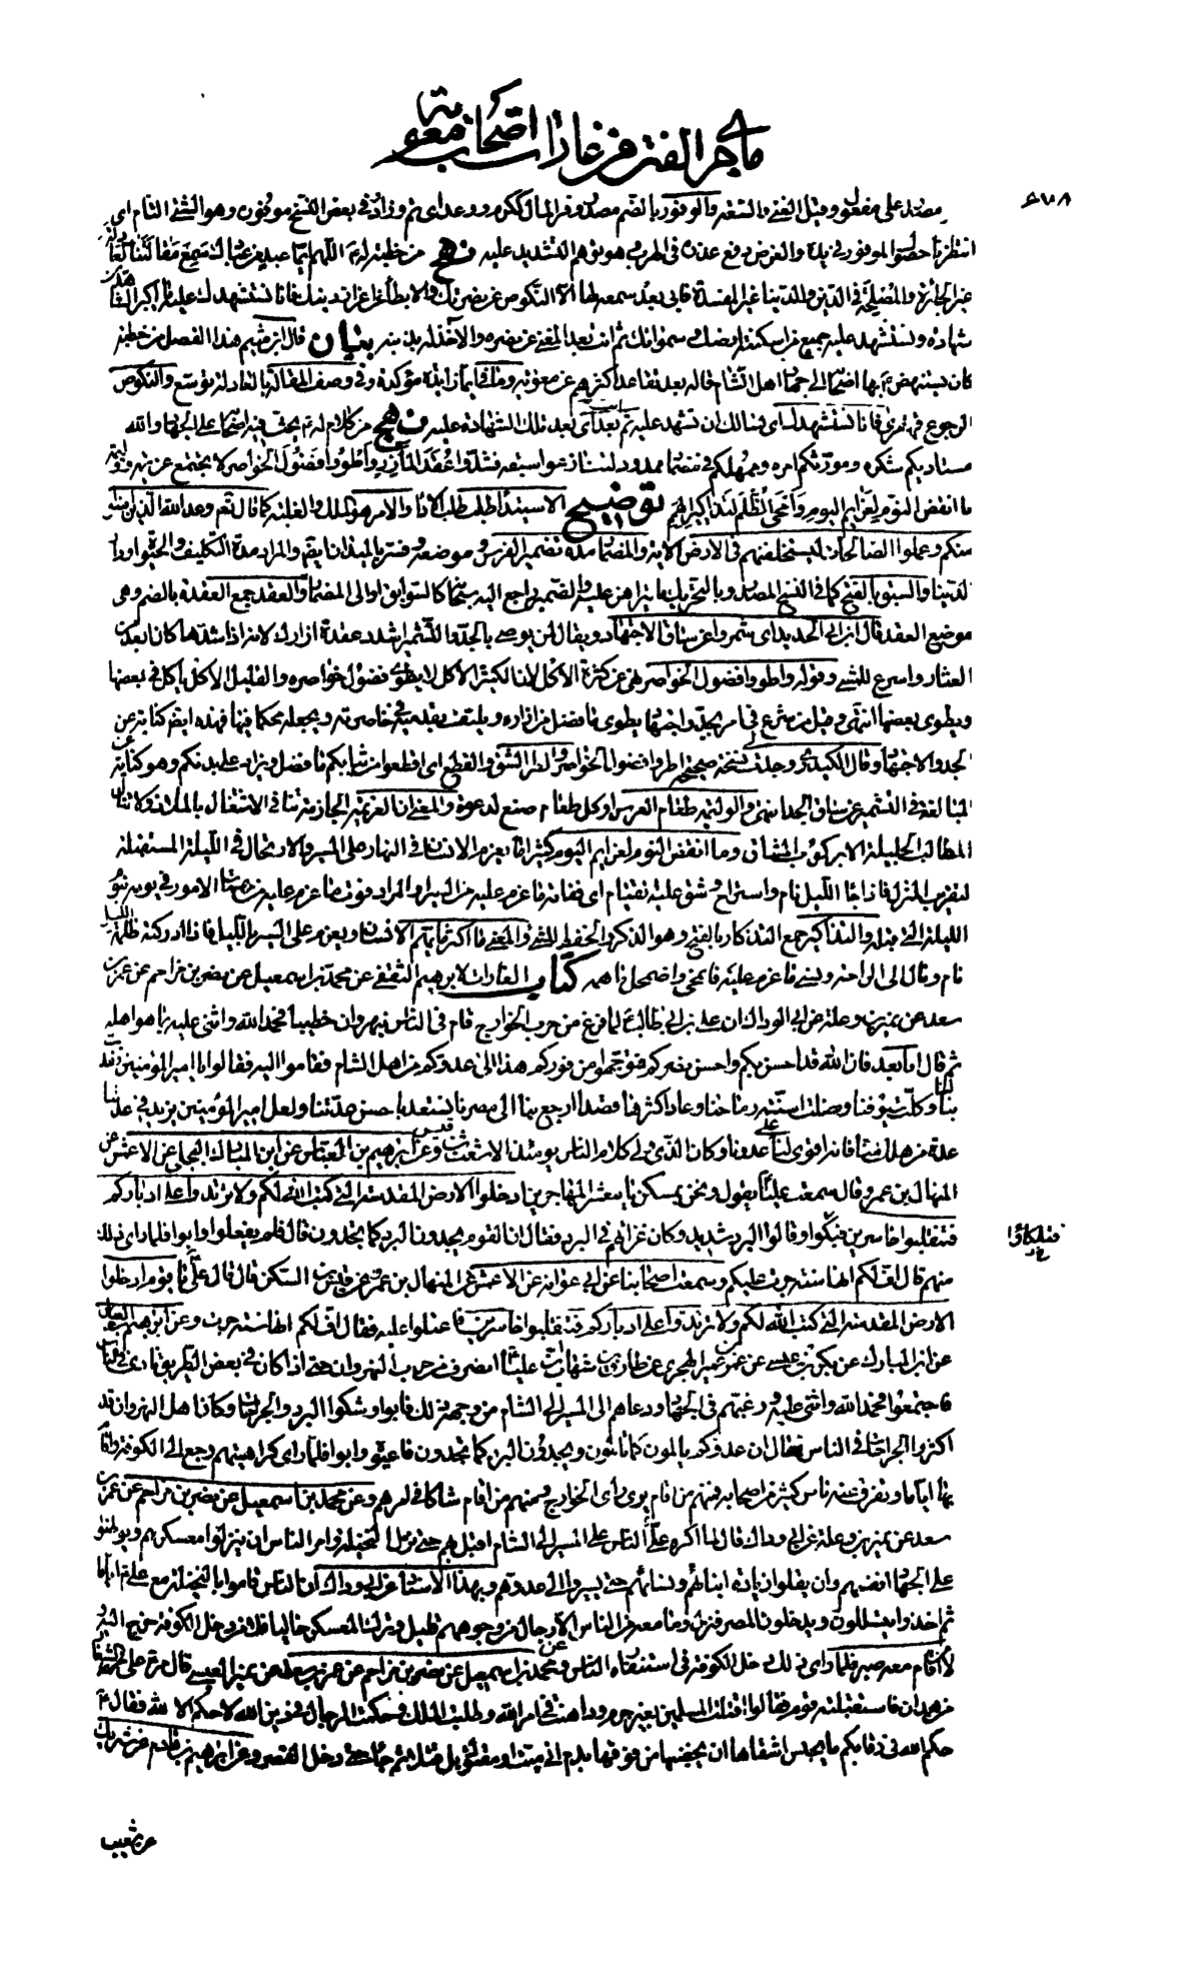 ما جرى من الفتن من غارات أصحاب معوية
٦٧٨
مصدر على مفعول وقيل الغنى والسعة والوفور بالضم مصدر وفر المال ككرم ووعد اى تم وزاد فى بعض النسخ موفون وهو الشئ التام اى
انتظرنا حصول الموفور فى يده والغرض دفع عذره فى الهرب هو توهم التشديد عليه نهج من خطبة له ع اللهم ايما عبد من عبادك سمع مقالتنا العادلة
غير الجائرة والمصلحة فى الدين والدنيا غير المفسدة فابى بعد سمعه لها الا النكوص عن نصرتك والابطاء عن اعزاز دينك فانا نستشهدك عليه يا اكبر الشاهدين
شهادة ونستشهد عليه جميع من اسكنته ارضك وسمواتك ثم انت بعد المغنى عن نصره والاخذ له بذنبه بيان قال ابن ميثم هذا الفصل من خطبة
كان يستنهض ع بها اصحابه الى جهاد اهل الشام قاله بعد تقاعد اكثرهم عن معونته وما فى ايما زايدة مؤكدة وفى وصف المقالة بالعادلة توسع والنكوص
الرجوع قهقرى فانا نستشهدك اى نسالك ان تشهد عليه ثم انت بعد اى بعد تلك الشهادة عليه نهج من كلام له ع يحث فيه اصحابه على الجهاد والله
مستاديكم شكره ومورثكم امره وممهلكم فى مضمار ممدود لتتنازعوا سبقه فشدوا عقد المآزر واطووا فضول الخواصر لا تجتمع عزيمة ووليمة
ما انقض النوم لعزائم اليوم وامحى الظلم لتذاكير الهمم توضيح الاستيداء طلب الاداء والامر هو الملك والغلبة كما قال تعم وعد الله الذين امنوا
منكم وعملوا الصالحات ليستخلفنهم فى الارض الاية والمضمار مدة تضمير الفرس وموضعه وفسر بالميدان ايضم والمراد مدة التكليف والحيوة او دار
الدنيا والسبق بالفتح كما فى النسخ المصدر وبالتحريك ما يتراهن عليه والضمير راجع اليه سبحانه كالسوابق او الى المضمار والعقد جمع العقدة بالضم وهى
موضع العقد قال ابن ابى الحديد اى شمروا عن ساق الاجتهاد ويقال لمن يوصى بالجد والتشمير اشدد عقدة ازارك لانه اذا شدها كان ابعد من
العثار واسرع للمشى وقوله واطووا فضول الخواصر نهى عن كثرة الاكل لان الكثير الاكل لا يطوى فضول خواصره والقليل الاكل ياكل فى بعضها
ويطوى بعضها انتهى وقيل من شرع فى امر بجد واجتهاد يطوى ما فضل من ازاره ويلتف بقدميه فى خاصرته ويجعله محكما فيها فهذه ايضم كناية عن
الجد والاجتهاد وقال الكيدرى وجدت فى نسخة صحيحة اطروا فضول الخواصر والطر الشق والقطع اى اقطعوا من ثيابكم ما فضل وزاد على بدنكم وهو كناية عن
المبالغة فى التشمير عن ساق الجد انتهى والوليمة طعام العرس او كل طعام صنع لدعوة والمعنى ان العزيمة الجازمة تنافى الاشتغال بالملاذ ولا تنال
المطالب الجليلة الا بركوب المشاق وما انقض النوم لعزايم اليوم كثيرا ما يعزم الانسان فى النهار على المسير والارتحال فى الليلة المستقبلة
لتقريب المنزل فاذا جاء الليل نام واستراح وشق عليه القيام اى ففاته ما عزم عليه من السير او المراد فوت ما عزم عليه من مهمات الامور فى يومه بنوم
الليلة التى قبله والتذاكير جمع التذكار بالفتح وهو الذكر والحفظ للشئ والمعنى ما اكثر ما يهم الانسان ويعزم على السير بالليل فاذا ادركته ظلمة الليل
نام وقال الى الراحة ونسى ما عزم عليه فامحى واضمحل ذا همه كتاب الغارات لابرهيم الثقفى عن محمد بن اسمعيل عن نصر بن مزاحم عن عمر بن
سعد عن نمير بن وعلة عن ابى الوداك ان على بن ابى طالب ع لما فرغ من حرب الخوارج قام فى الناس بنهروان خطيبا فحمد الله واثنى عليه بما هو اهله
ثم قال اما بعد فان الله قد احسن بكم واحسن نصركم فتوجهوا من فوركم هذا الى عدوكم من اهل الشام فقاموا اليه فقالوا يا امير المؤمنين نفدت
نبالنا وكلت سيوفنا ونصلت اسنة رماحنا وعاد اكثرها قصدا ارجع بنا الى مصرنا نستعد باحسن عدتنا ولعل امير المؤمنين يزيد فى عدتنا
عدة من هلك منا فانه اقوى لنا على عدونا وكان الذى ولى كلام الناس يومئذ الاشعث بن قيس وعن ابرهيم بن العباس عن ابن المبارك البجلى عن الاعمش عن
المنهال بن عمرو قال سمعت عليا يقول ونحن بمسكن يا معشر المهاجرين ادخلوا الارض المقدسة التى كتب الله لكم ولا ترتدوا على ادباركم
فتنقلبوا خاسرين فبكوا وقالوا البرد شديد وكان غزاتهم فى البرد فقال ان القوم يجدون البرد كما تجدون قال فلم يفعلوا وابوا فلما راى ذلك
فتلكاوا
منهم قال اف لكم انها سنة جرت عليكم وسمعت اصحابنا عن ابى عوانة عن الاعمش عن المنهال بن عمرو عن قيس بن السكن قال قال على ع يا قوم ادخلوا
الارض المقدسة التى كتب الله لكم ولا ترتدوا على ادباركم فتنقلبوا خاسرين فاعتلوا عليه فقال اف لكم انها سنة جرت وعن ابرهيم بن العباس
عن ابن المبارك عن بكر بن عيسى عن عمرو بن عمير الهجرى عن طارق بن شهاب ان عليا ع انصرف من حرب النهروان حتى اذا كان فى بعض الطريق نادى فى الناس
فاجتمعوا فحمد الله واثنى عليه ورغبهم فى الجهاد ودعاهم الى المسير الى الشام من وجهه ذلك فابوا وشكوا البرد والجراحات وكان اهل النهروان قد
اكثروا الجراحات فى الناس فقال ان عدوكم يالمون كما تالمون ويجدون البرد كما تجدون فاعيوه وابوا فلما راى كراهيتهم رجع الى الكوفة واقام
بها اياما وتفرق عنه ناس كثير من اصحابه فمنهم من اقام يرى راى الخوارج ومنهم من اقام شاكا فى امرهم وعن محمد بن اسمعيل عن نصر بن مزاحم عن عمر بن
سعد عن نمير بن وعلة عن ابى وداك قال لما اكره على ع الناس على المسير الى الشام اقبل بهم حتى نزل النخيلة وامر الناس ان ينزلوا معسكرهم ويوطنوا
على الجهاد انفسهم وان يقلوا زيارة ابنائهم ونسائهم حتى يسيروا الى عدوهم وبهذا الاسناد عن ابى وداك ان الناس قاموا بالنخيلة مع على ع اياما
ثم اخذوا يتسللون ويدخلون المصر فنزل وما معه من الناس الا رجال من وجوههم قليل وترك المعسكر خاليا فلا من دخل الكوفة خرج اليه و
لا من اقام معه صبر فلما راى ذلك دخل الكوفة فى استنفاره الناس وعن محمد بن اسمعيل عن نصر بن مزاحم عن عمر بن سعد عن نمير العبسى قال مر على ع على الشفار
من همدان فاستقبله قوم فقالوا اقتلت المسلمين بغير جرم وداهنت فى امر الله وطلبت الملك وحكمت الرجال فى دين الله لا حكم الا لله فقال ع
حكم الله فى رقابكم ما يحبس اشقاها ان يخضبها من فوقها بدم انى ميت او مقتول بل قتلا ثم جاء حتى دخل القصر وعن ابرهيم بن قادم عن شريك
عن شعيب